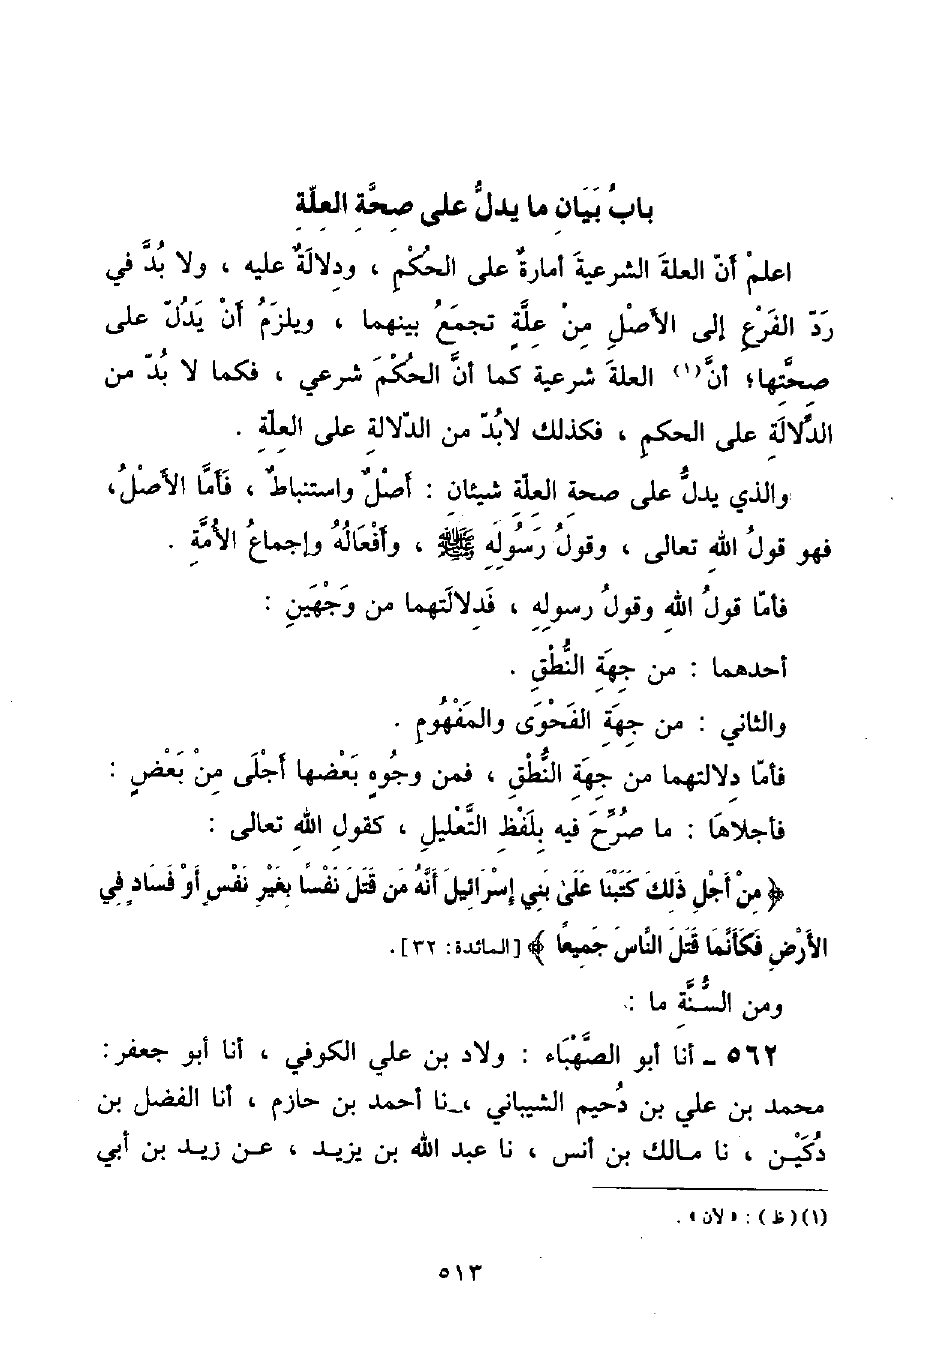 بابُ بَيَانِ ما يدلُّ على صِحَّةِ العِلّةِ
اعلمْ أنّ العلةَ الشرعيةَ أمارةٌ على الحُكْمِ ، ودِلالَةٌ عليه ، ولا بُدَّ في
رَدّ الفَرْعِ إلى الأصْلِ مِنْ عِلَّةٍ تجمَعُ بينهما ، ويلزَمُ أنْ يَدُلّ على
صحَّتِها؛ أنَّ(١) العلةَ شرعية كما أنَّ الحُكْمَ شرعي ، فكما لا بُدّ من
الدِّلالَةِ على الحكمِ ، فكذلك لابُدّ من الدّلالةِ على العِلّةِ .
والذي يدلُّ على صحةِ العلّةِ شيئانِ : أصْلٌ واستنباطٌ ، فَأمَّا الأصْلُ،
فهو قولُ اللهِ تعالى ، وقولُ رَسُولِهِ ﷺ ، وأفْعَالُهُ وإجماعُ الأمَّةِ .
فأمّا قولُ اللهِ وقولُ رسولِهِ ، فَدِلالَتهما من وَجْهَينِ :
أحدهما : من جِهَةِ النُّطْقِ .
والثاني : من جِهَةِ الفَحْوَى والمَفْهُومِ .
فأمّا دِلالتهما من جِهَةِ النُّطْقِ ، فمن وجُوهٍ بَعْضها أجْلَى مِنْ بَعْضٍ :
فأجلاهَا : ما صُرِّحَ فيه بِلَفْظِ التَّعْليلِ ، كقولِ اللهِ تعالى :
﴿ مِنْ أَجْلِ ذَلِكَ كَتَبْنَا عَلَىٰ بَنِي إسْرَائِيلَ أَنَّهُ مَن قَتَلَ نَفْسًا بِغَيْرِ نَفْسٍ أوْ فَسَادٍ فِي
الأَرْضِ فَكَأنَّمَا قَتَلَ النَّاسَ جَمِيعًا ﴾ [المائدة: ٣٢].
ومن السُّنَّةِ ما :
٥٦٢ ـ أنا أبو الصَّهْبَاء : ولاد بن علي الكوفي ، أنا أبو جعفر:
محمد بن علي بن دُحيم الشيباني ، نا أحمد بن حازم ، أنا الفضل بن
دُكَيْن ، نا مالك بن أنس ، نا عبد الله بن يزيد ، عن زيد بن أبي
(١) (ظ) : «لأن» .
٥١٣